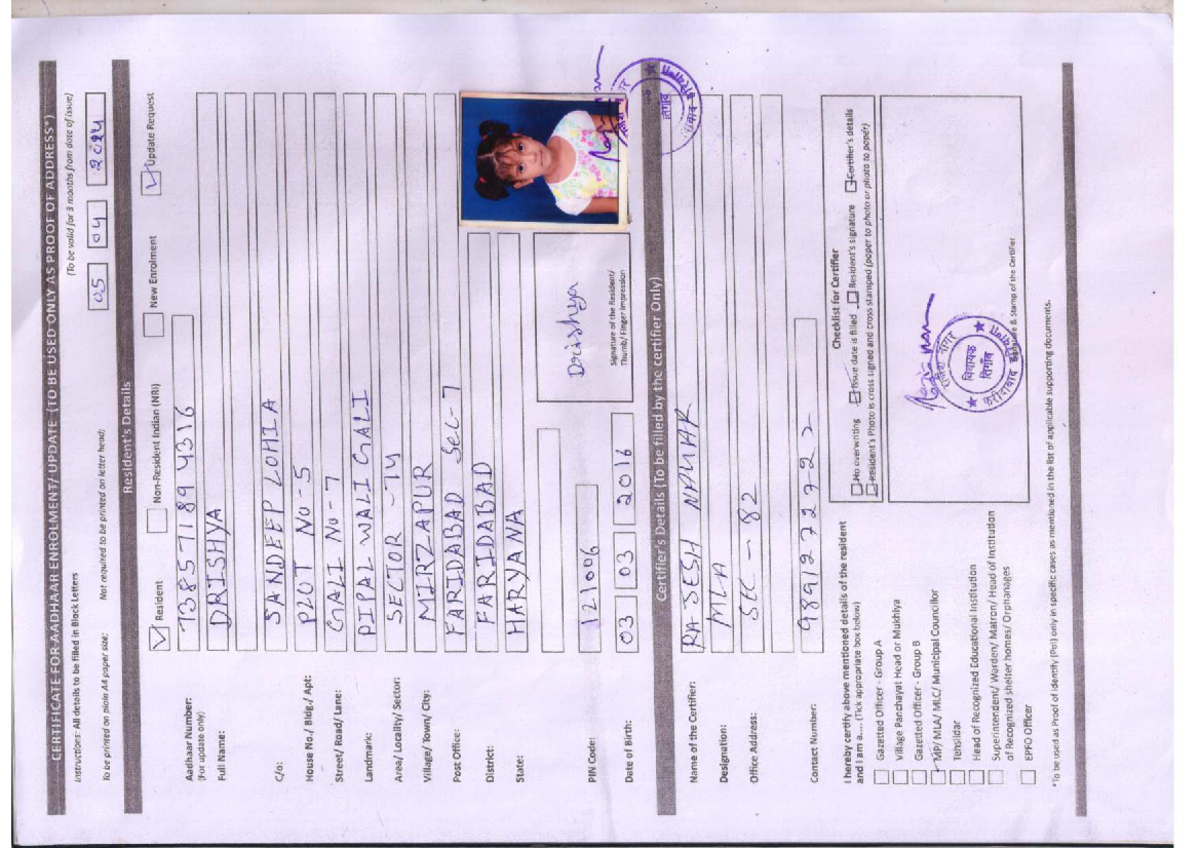 CERTIFICATE FOR AADHAAR ENROLMENT/ UPDATE (TO BE USED ONLY AS PROOF OF ADDRESS*)
Instructions: All details to be filled in Block Letters
(To be valid for 3 months from date of issue)
To be printed on plain A4 paper size; Not required to be printed on letter head;
05 04 2024
Resident's Details
Resident Non-Resident Indian (NRI) New Enrolment Update Request
Aadhaar Number: 7385 7189 4316
(For update only)
Full Name: DRISHYA
C/o: SANDEEP LOHIA
House No./ Bldg./ Apt: PLOT NO-5
Street/ Road/ Lane: GALI NO-7
Landmark: PIPAL WALI GALI
Area/ Locality/ Sector: SECTOR -74
Village/ Town/ City: MIRZAPUR
Post Office: FARIDABAD Sec-7
District: FARIDABAD
State: HARYANA
PIN Code: 121006
Drishya
Signature of the Resident/
Thumb/ Finger Impression
Date of Birth: 03 03 2016
Certifier's Details (To be filled by the certifier Only)
Name of the Certifier: RAJESH NAGAR
Designation: MLA
Office Address: SEC - 82
Contact Number: 9891272722
I hereby certify above mentioned details of the resident
and I am a.... (Tick appropriate box below)
Gazetted Officer - Group A
Village Panchayat Head or Mukhiya
Gazetted Officer - Group B
MP/ MLA/ MLC/ Municipal Councillor
Tehsildar
Head of Recognized Educational Institution
Superintendent/ Warden/ Matron/ Head of Institution
of Recognized shelter homes/ Orphanages
EPFO Officer
Checklist for Certifier
No overwriting Issue date is filled Resident's signature Certifier's details
Resident's Photo is cross signed and cross stamped (paper to photo or photo to paper)
विधायक
तिगाँव
Signature & Stamp of the Certifier
*To be used as Proof of Identity (PoI) only in specific cases as mentioned in the list of applicable supporting documents.